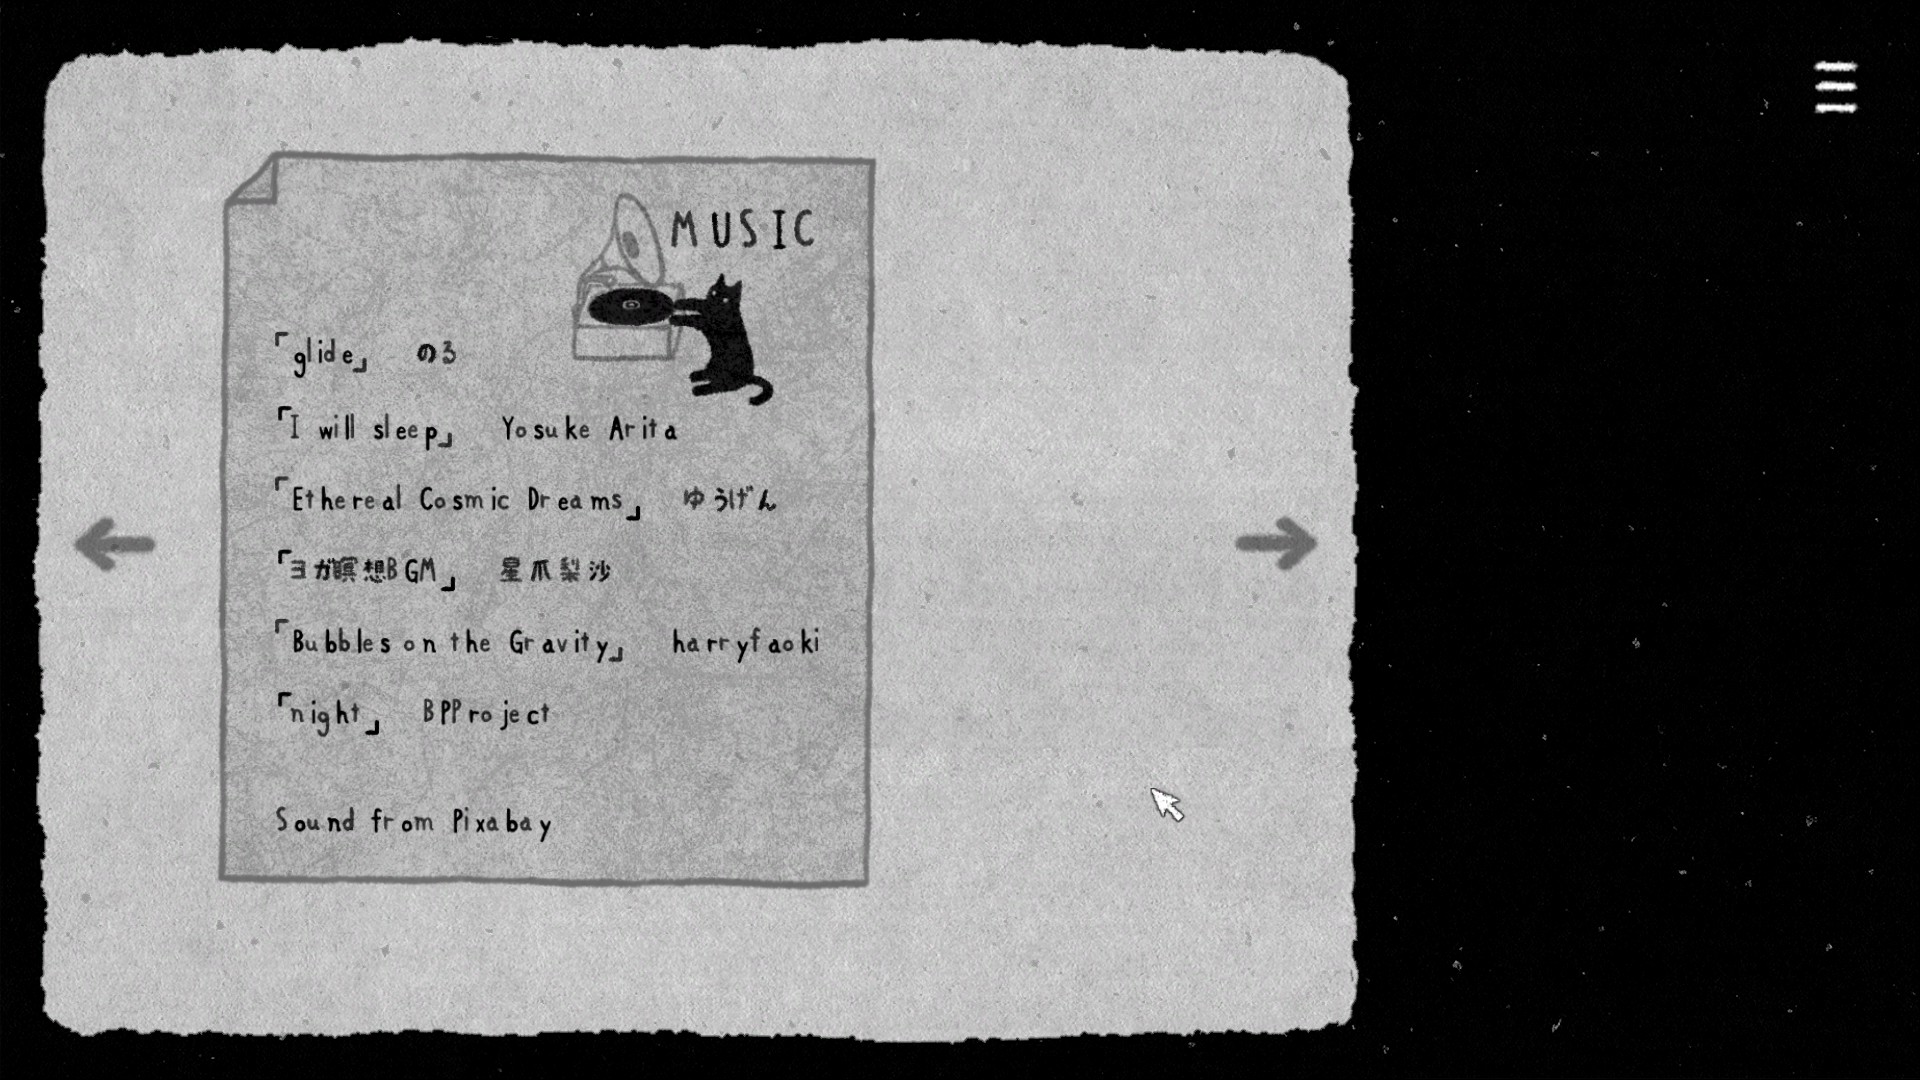 MUSIC
「glide」 のる
「I will sleep」 Yosuke Arita
「Ethereal Cosmic Dreams」 ゆうげん
「ヨガ瞑想BGM」 星爪梨沙
「Bubbles on the Gravity」 harryfaoki
「night」 BPProject
Sound from Pixabay